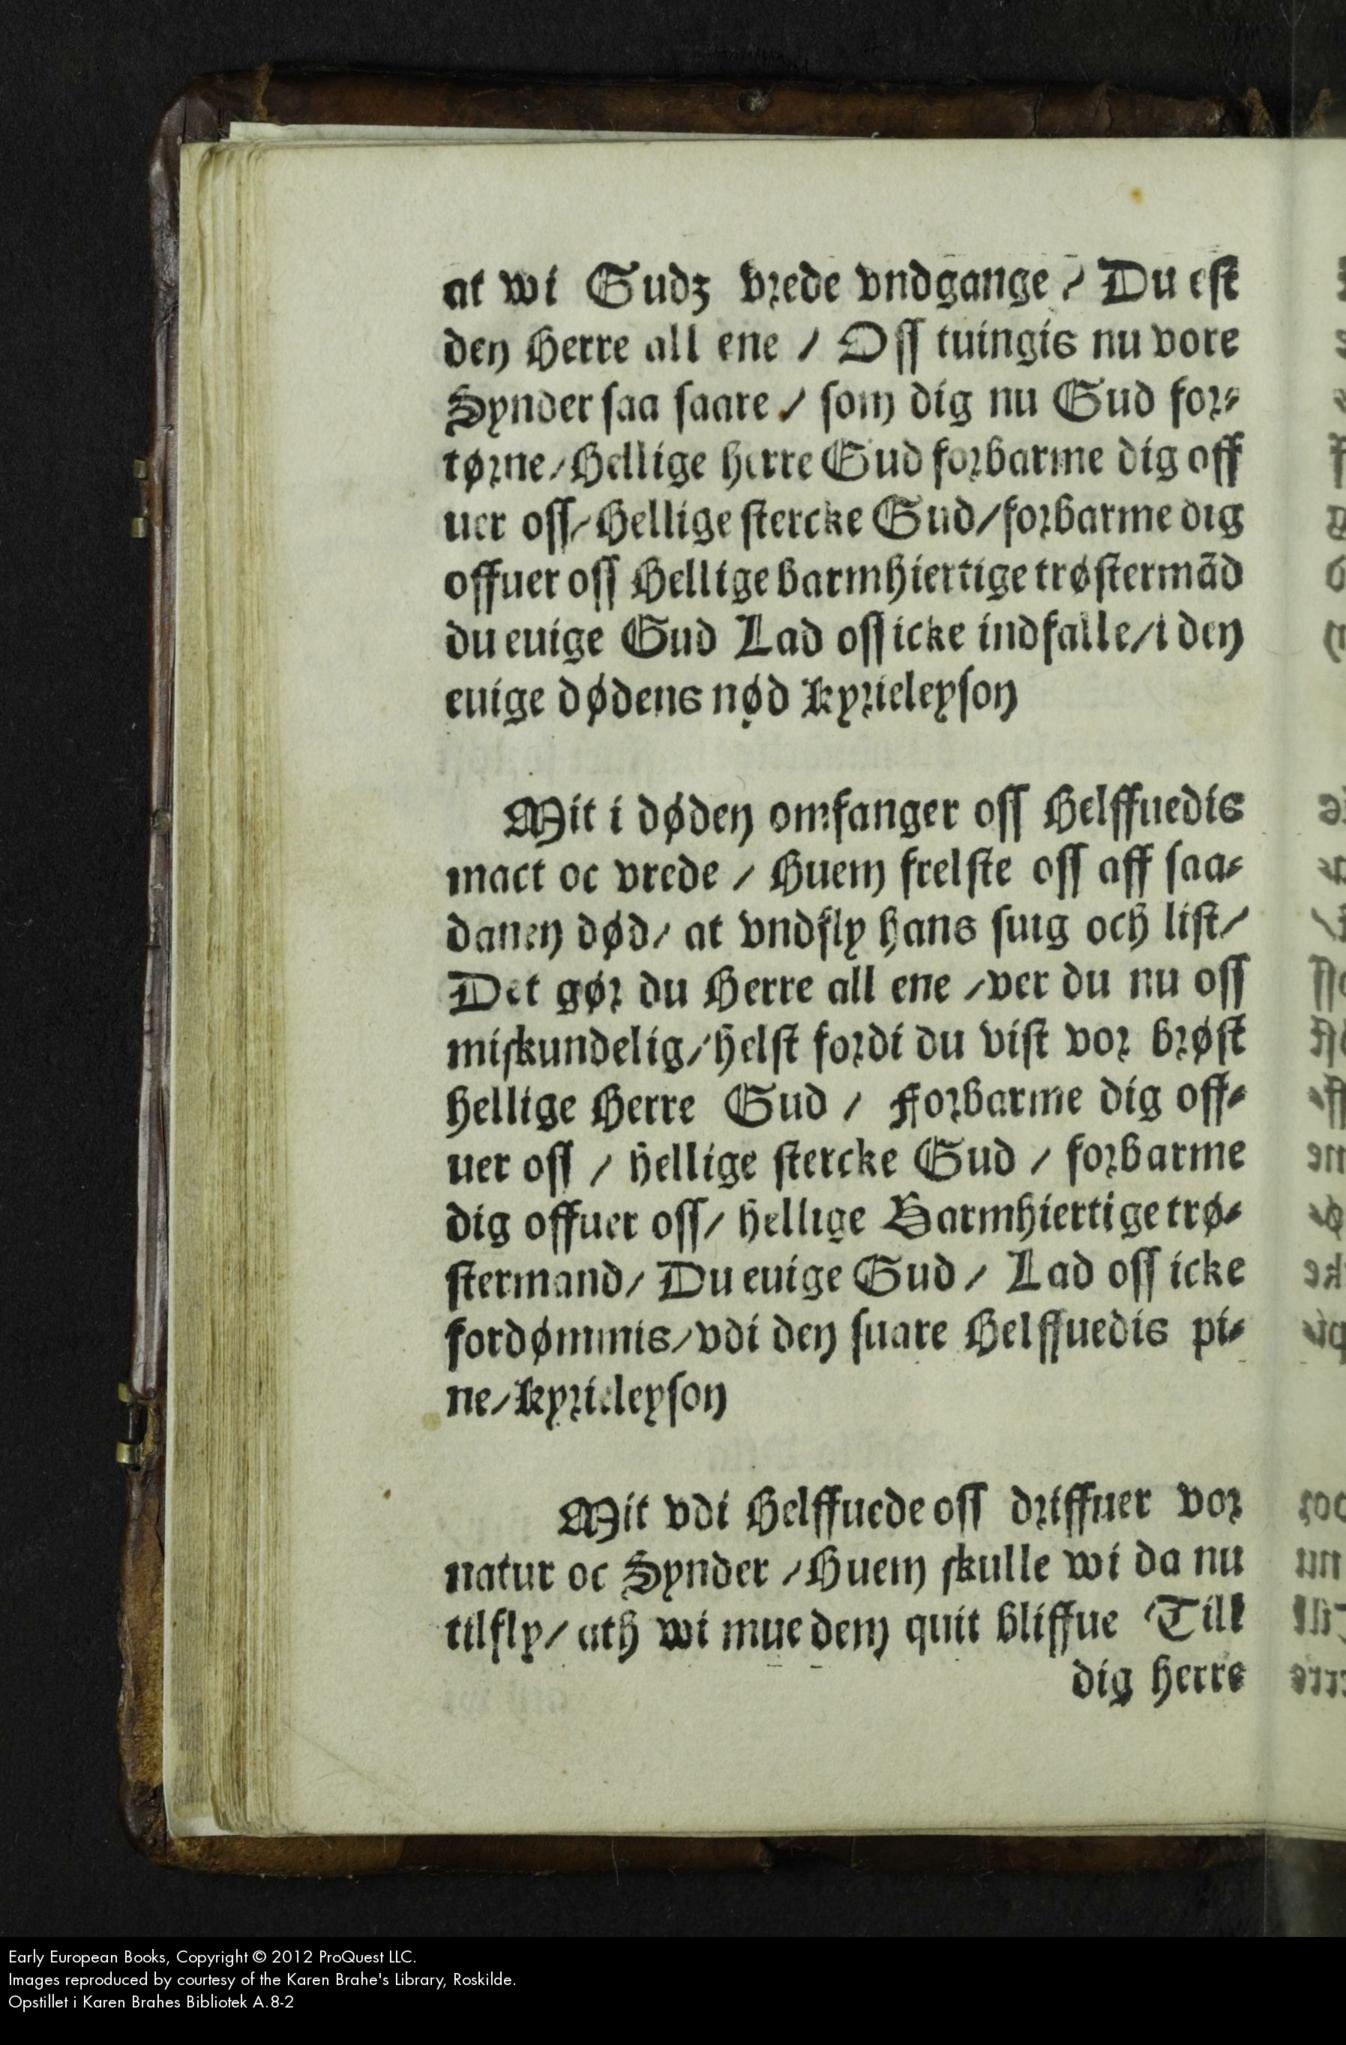 at wi Gudz vrede vndgange / Du est
den Herre all ene / Oss tuingis nu vore
Synder saa saare / som dig nu Gud for⸗
tørne / Hellige herre Gud forbarme dig off
uer oss / Hellige stercke Gud / forbarme dig
offuer oss Hellige barmhiertige trøstermãd
du euige Gud Lad oss icke indfalle / i den
euige dødens nød Kyrieleyson
Mit i døden omfanger oss Helffuedis
mact oc vrede / Huem frelste oss aff saa⸗
danen død / at vndfly hans suig och list /
Det gør du Herre all ene / ver du nu oss
miskundelig / helst fordi du vist vor brøst
hellige Herre Gud / Fforbarme dig off⸗
uer oss / hellige stercke Gud / forbarme
dig offuer oss / hellige Barmhiertige trø⸗
stermand / Du euige Gud / Lad oss icke
fordømmis / vdi den suare Helffuedis pi⸗
ne / kyrieleyson
Mit vdi Helffuede oss driffuer vor
natur oc Synder / Huem skulle wi da nu
tilfly / ath wi mue dem quit bliffue Till
dig herre
Early European Books, Copyright © 2012 ProQuest LLC.
Images reproduced by courtesy of the Karen Brahe's Library, Roskilde.
Opstillet i Karen Brahes Bibliotek A.8-2